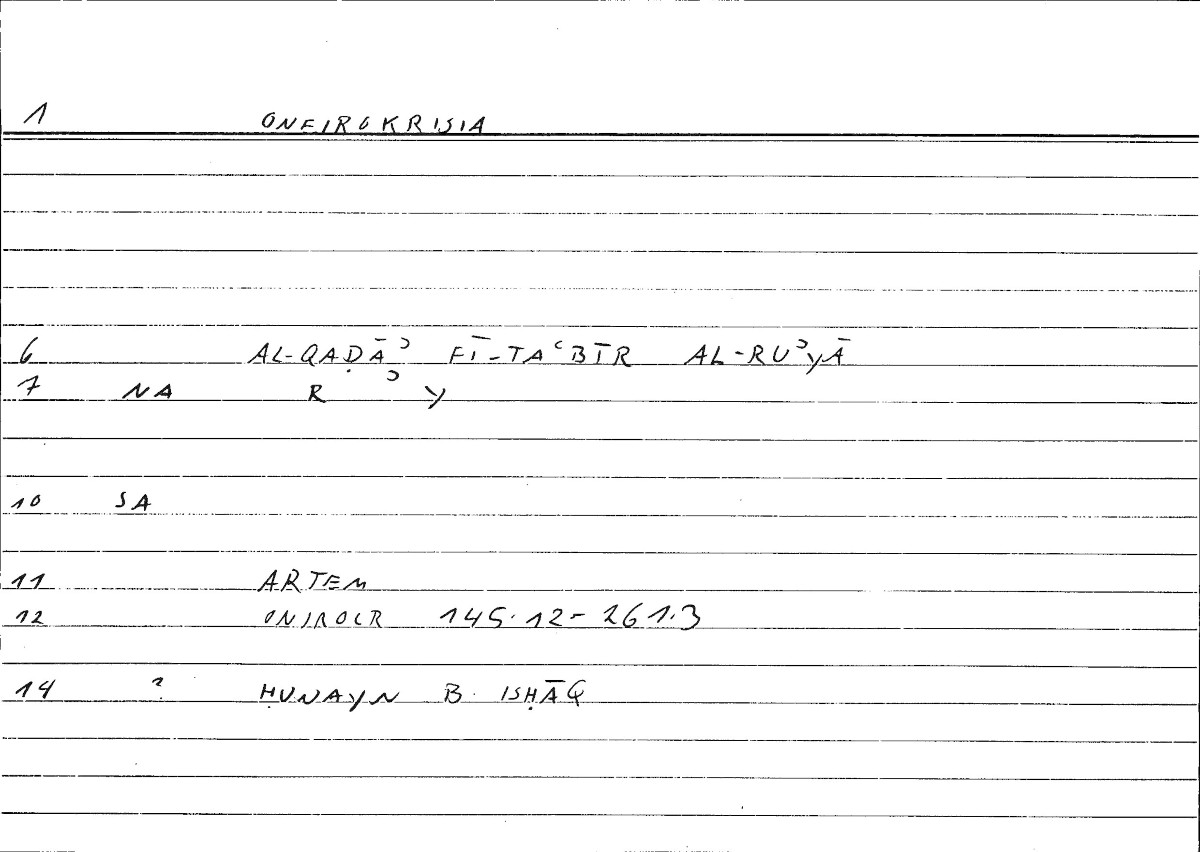 1 ONEIROKRISIA
6 AL-QAḌĀʾ FĪ-TAʿBĪR AL-RUʾYĀ
7 NA R ʾ Y
10 SA
11 ARTEM
12 ONIROCR 145.12-261.3
14 ? ḤUNAYN B. ISḤĀQ